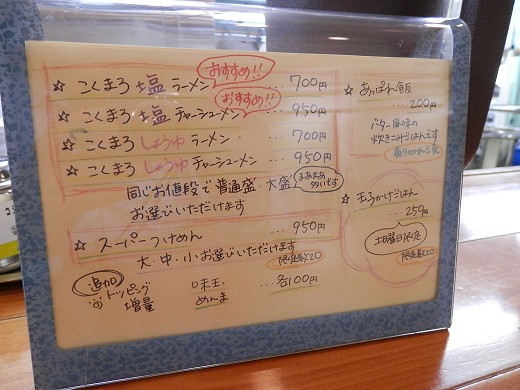 おすすめ!!
☆ こくまろ 塩 ラーメン ... 700円
おすすめ!!
☆ こくまろ 塩 チャーシューメン ... 950円
☆ こくまろ しょうゆ ラーメン ... 700円
☆ こくまろ しょうゆ チャーシューメン ... 950円
同じお値段で 普通盛・大盛
まあまあ多いです
お選びいただけます
☆ スーパーつけめん ... 950円
大・中・小お選びいただけます
限定数20
追加 トッピング 増量
味玉 めんま ... 各100円
☆ あっぱれ飯
... 200円
バター風味の
炊きこみごはんです
☆ 玉子かけごはん
... 250円
土曜日限定
限定数20